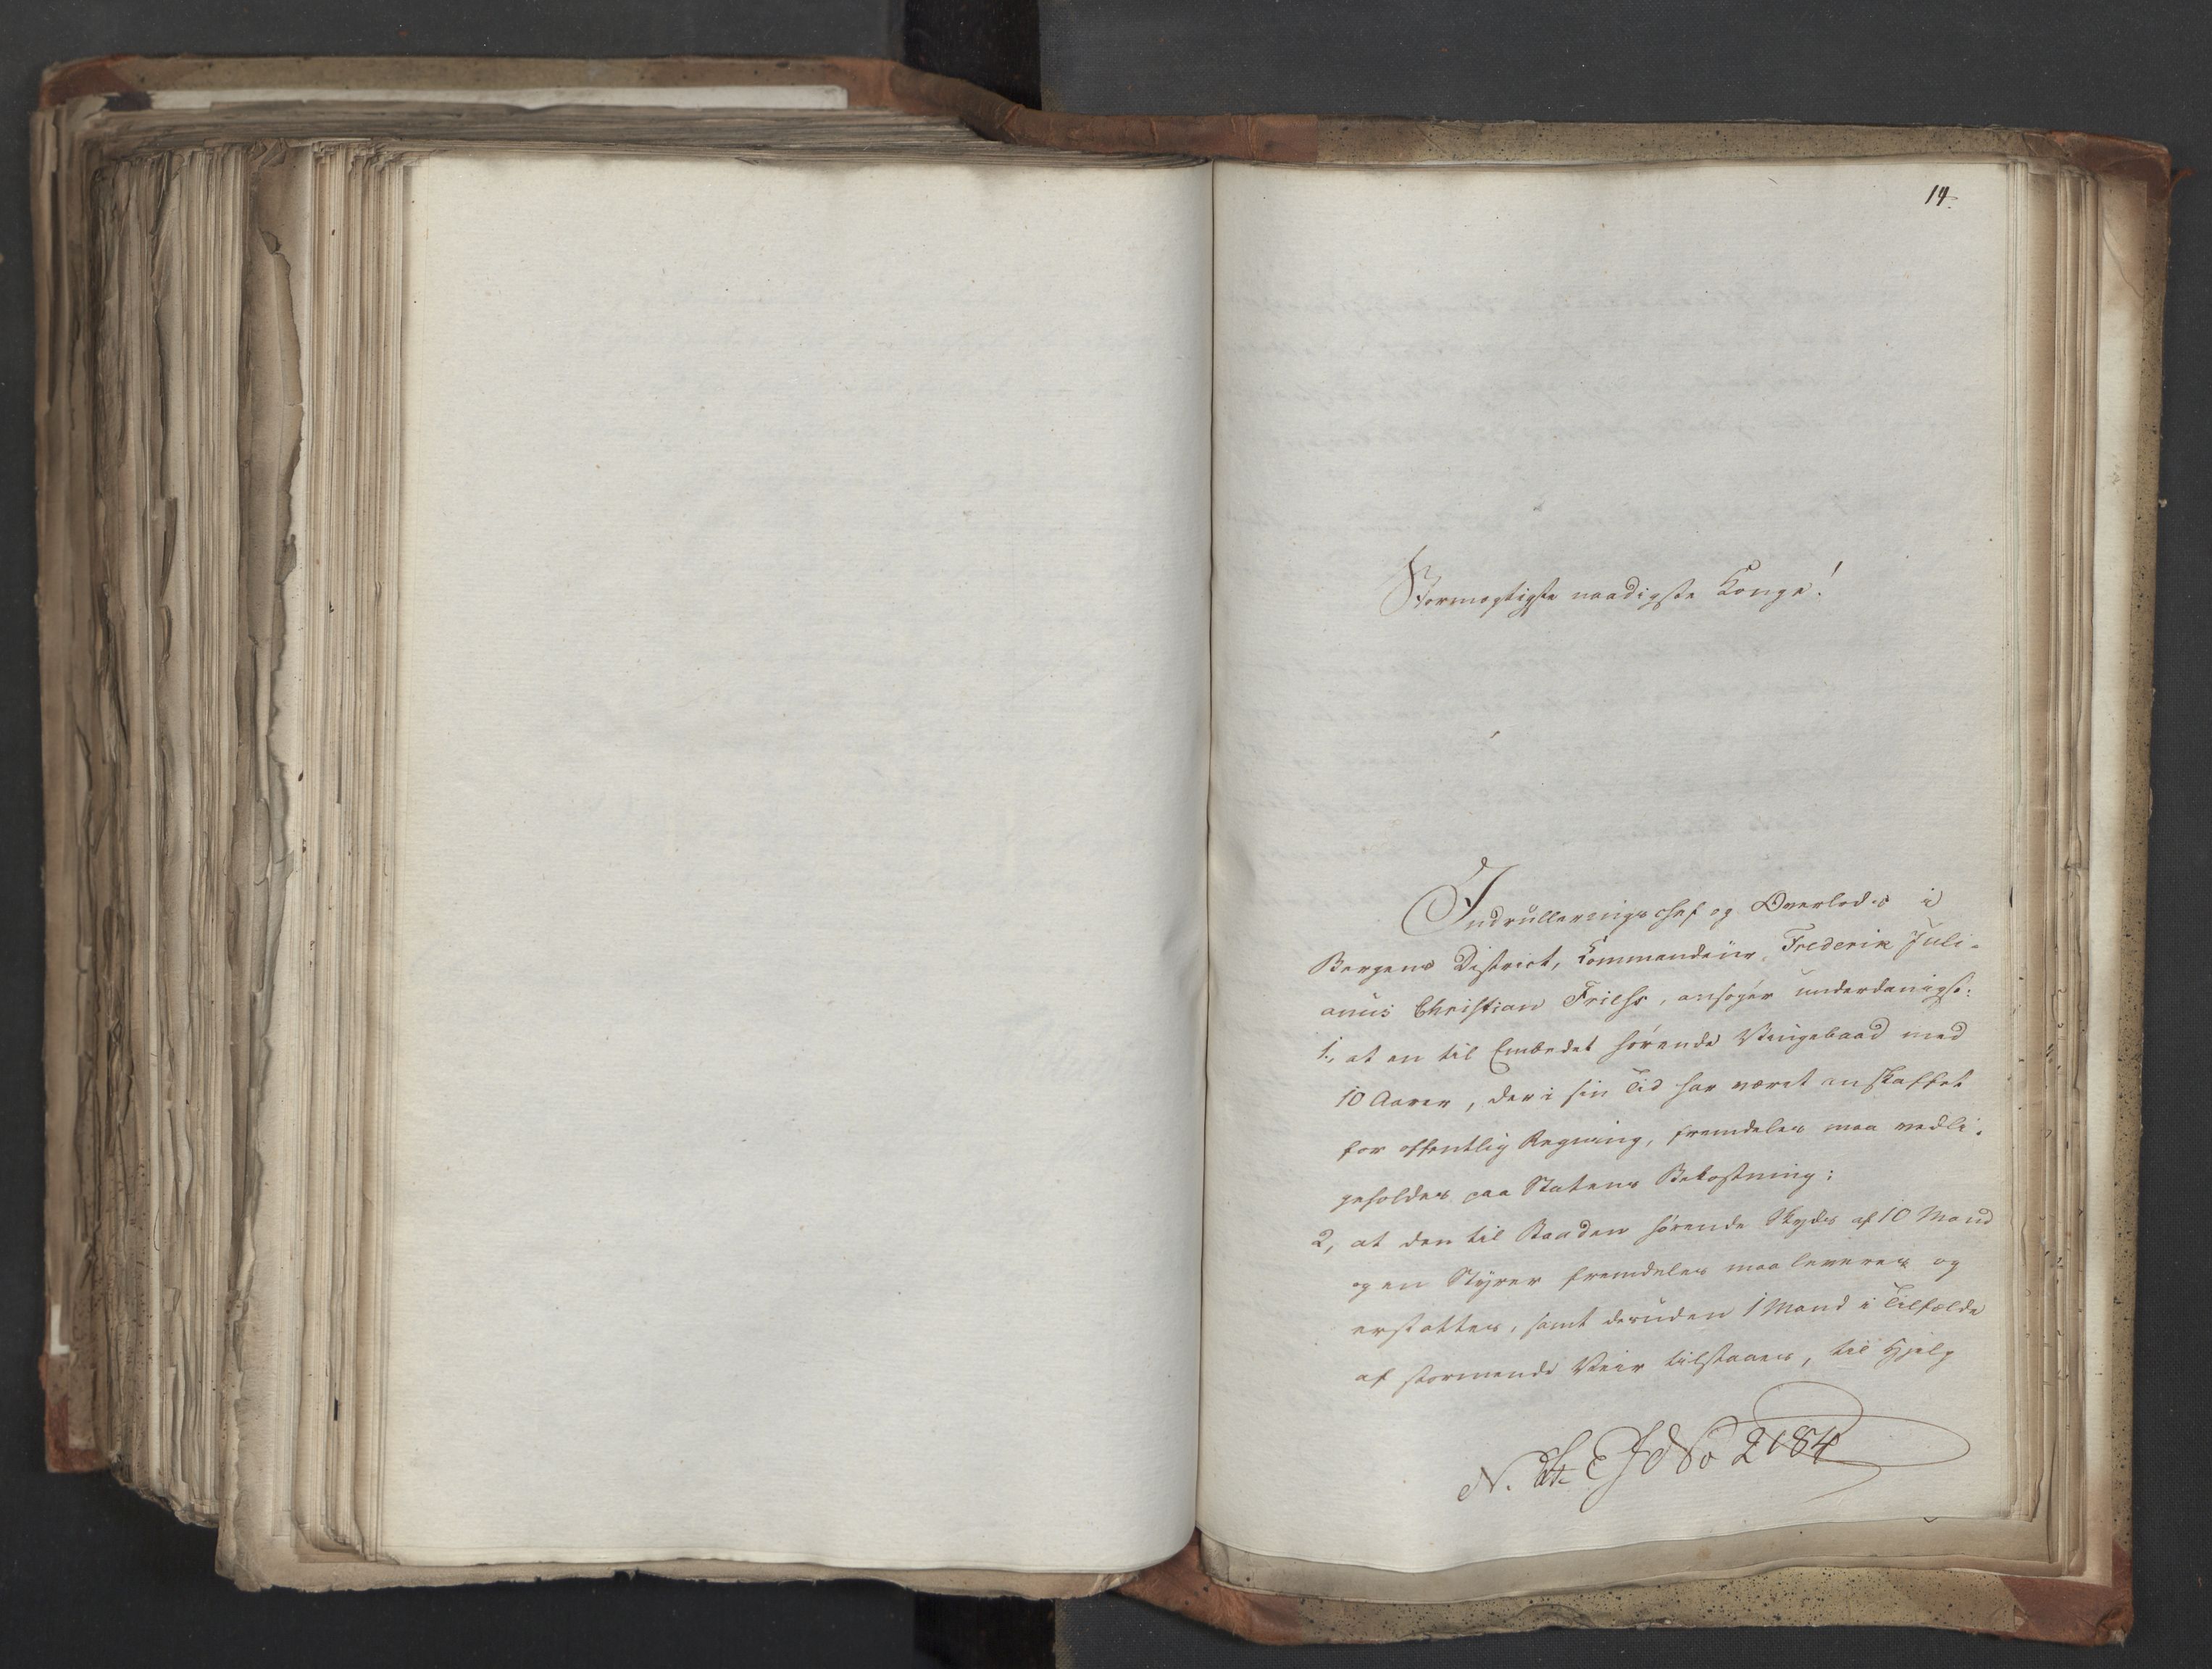 14.
Stormægtigste naadigste Konge!
Indrulleringschef og Overlods i
Bergens District, Kommandeur, Frederik Juli-
anus Christian Friess, ansøger underdanigst:
1., at en til Embedet hørende Slupsbaad med
10 Aarer, der i sin Tid har været anskaffet
for offentlig Regning, fremdeles maa vedli-
geholdes paa Statens Bekostning;
2, at den til Baaden hørende Skyds af 10 Mand
og en Styrer fremdeles maa leveres og
erstattes, samt desuden 1 Mand i Tilfælde
af stormende Veir tilstaaes, til Hjelp
2184